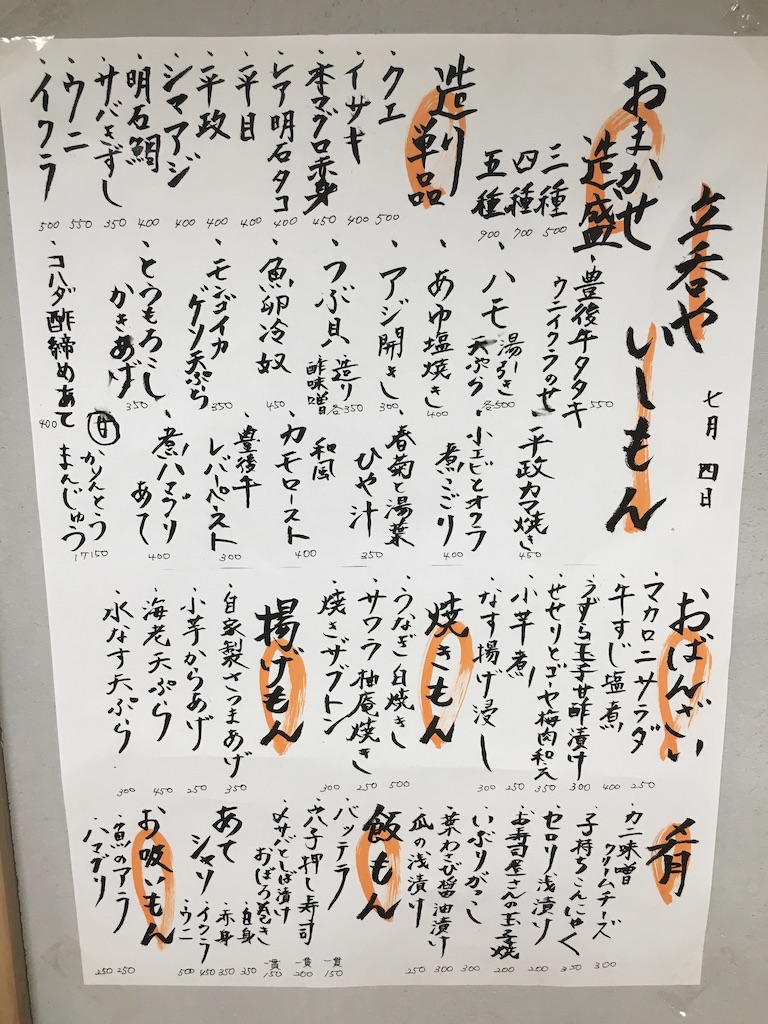 立呑や
いしもん
七月 四日
おまかせ
造盛
三種
500
四種
700
五種
900
造り
単品
・クエ
500
・イサキ
400
・本マグロ赤身
450
・レア明石タコ
400
・平目
400
・平政
400
・シマアジ
400
・明石鯛
400
・サバきずし
350
・ウニ
550
・イクラ
500
・豊後牛タタキ
ウニイクラのせ
550
、ハモ 湯引き
天ぷら
各500
、あゆ塩焼き
400
、アジ開き
300
、つぶ貝 造り
酢味噌
各350
、魚卵冷奴
450
、モンゴイカ
ゲソ天ぷら
350
、とうもろこし
かきあげ
350
、コハダ酢締めあて
400
、平政カマ焼き
450
、小エビとオクラ
煮こごり
400
、春菊と湯葉
ひや汁
350
和風
カモロースト
400
、豊後牛
レバーペースト
300
、煮ハマグリ
あて
400
甘 かりんとう
まんじゅう
1ケ150
おばんざい
・マカロニサラダ
250
・牛すじ塩煮
400
・うずら玉子甘酢漬け
300
・せせりとゴーヤ梅肉和え
350
・小芋煮
250
・なす揚げ浸し
300
焼きもん
・うなぎ白焼き
500
・サワラ柚庵焼き
250
・焼きザブトン
300
揚げもん
・自家製さつまあげ
350
・小芋からあげ
250
・海老天ぷら
450
・水なす天ぷら
300
肴
・カニ味噌
クリームチーズ
300
・子持ちこんにゃく
350
・セロリ浅漬け
200
・お寿司屋さんの玉子焼
200
・いぶりがっこ
300
・葉わさび醤油漬け
300
・瓜の浅漬け
250
飯もん
・バッテラ
一貫
150
・穴子押し寿司
一貫
200
・〆サバとしば漬け
おぼろ巻き
一貫
150
あて
シャリ
・白身
350
・赤身
350
・イクラ
450
・ウニ
500
お吸いもん
・魚のアラ
250
・ハマグリ
250